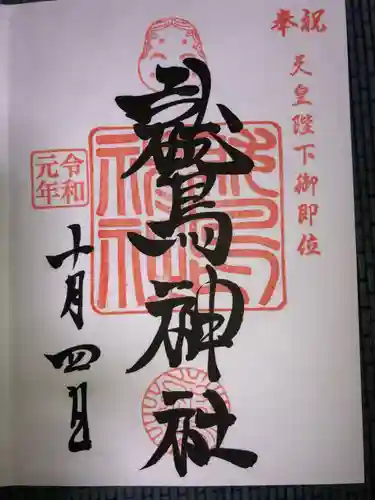 奉祝
天皇陛下御即位
鷲神社
鷲神社
令和元年
十月四日